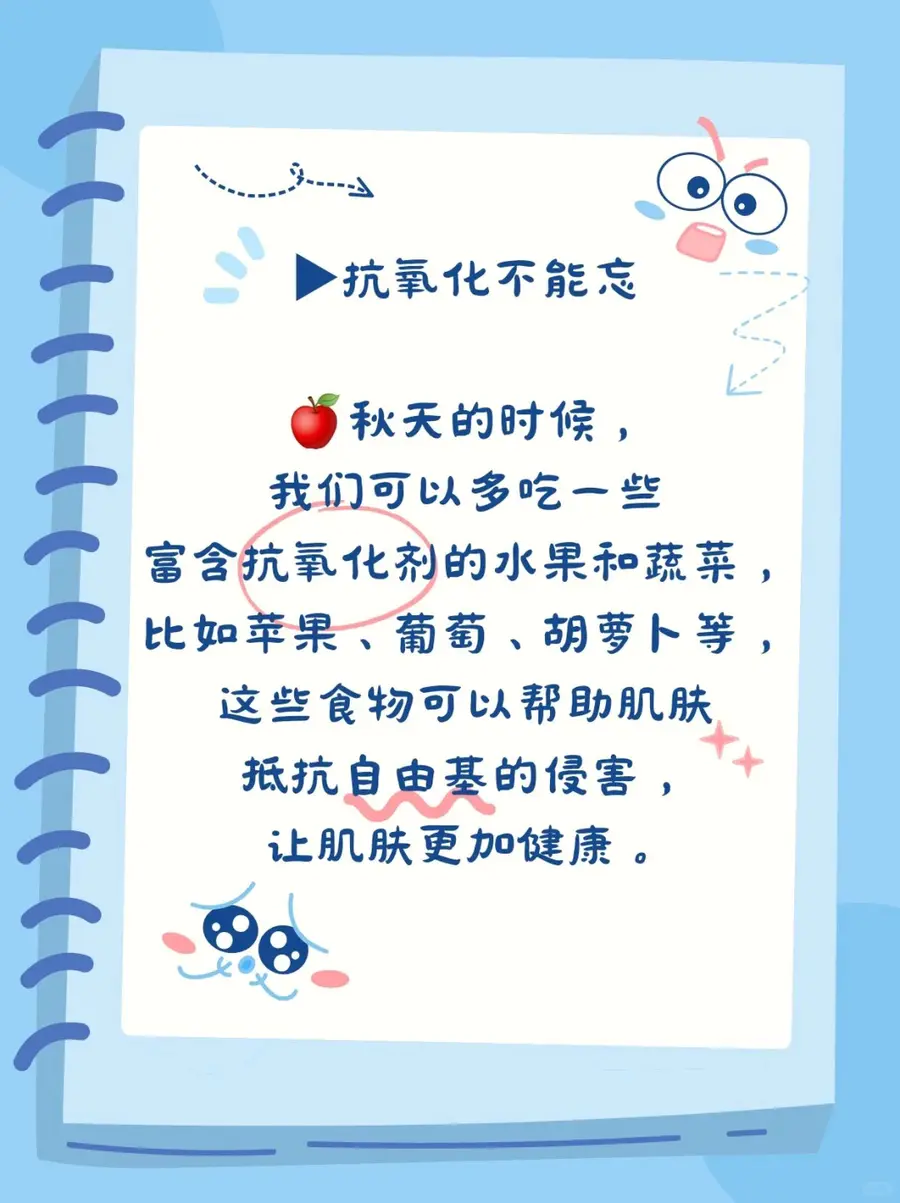 ▶抗氧化不能忘
🍎秋天的时候，
我们可以多吃一些
富含抗氧化剂的水果和蔬菜，
比如苹果、葡萄、胡萝卜等，
这些食物可以帮助肌肤
抵抗自由基的侵害，
让肌肤更加健康。